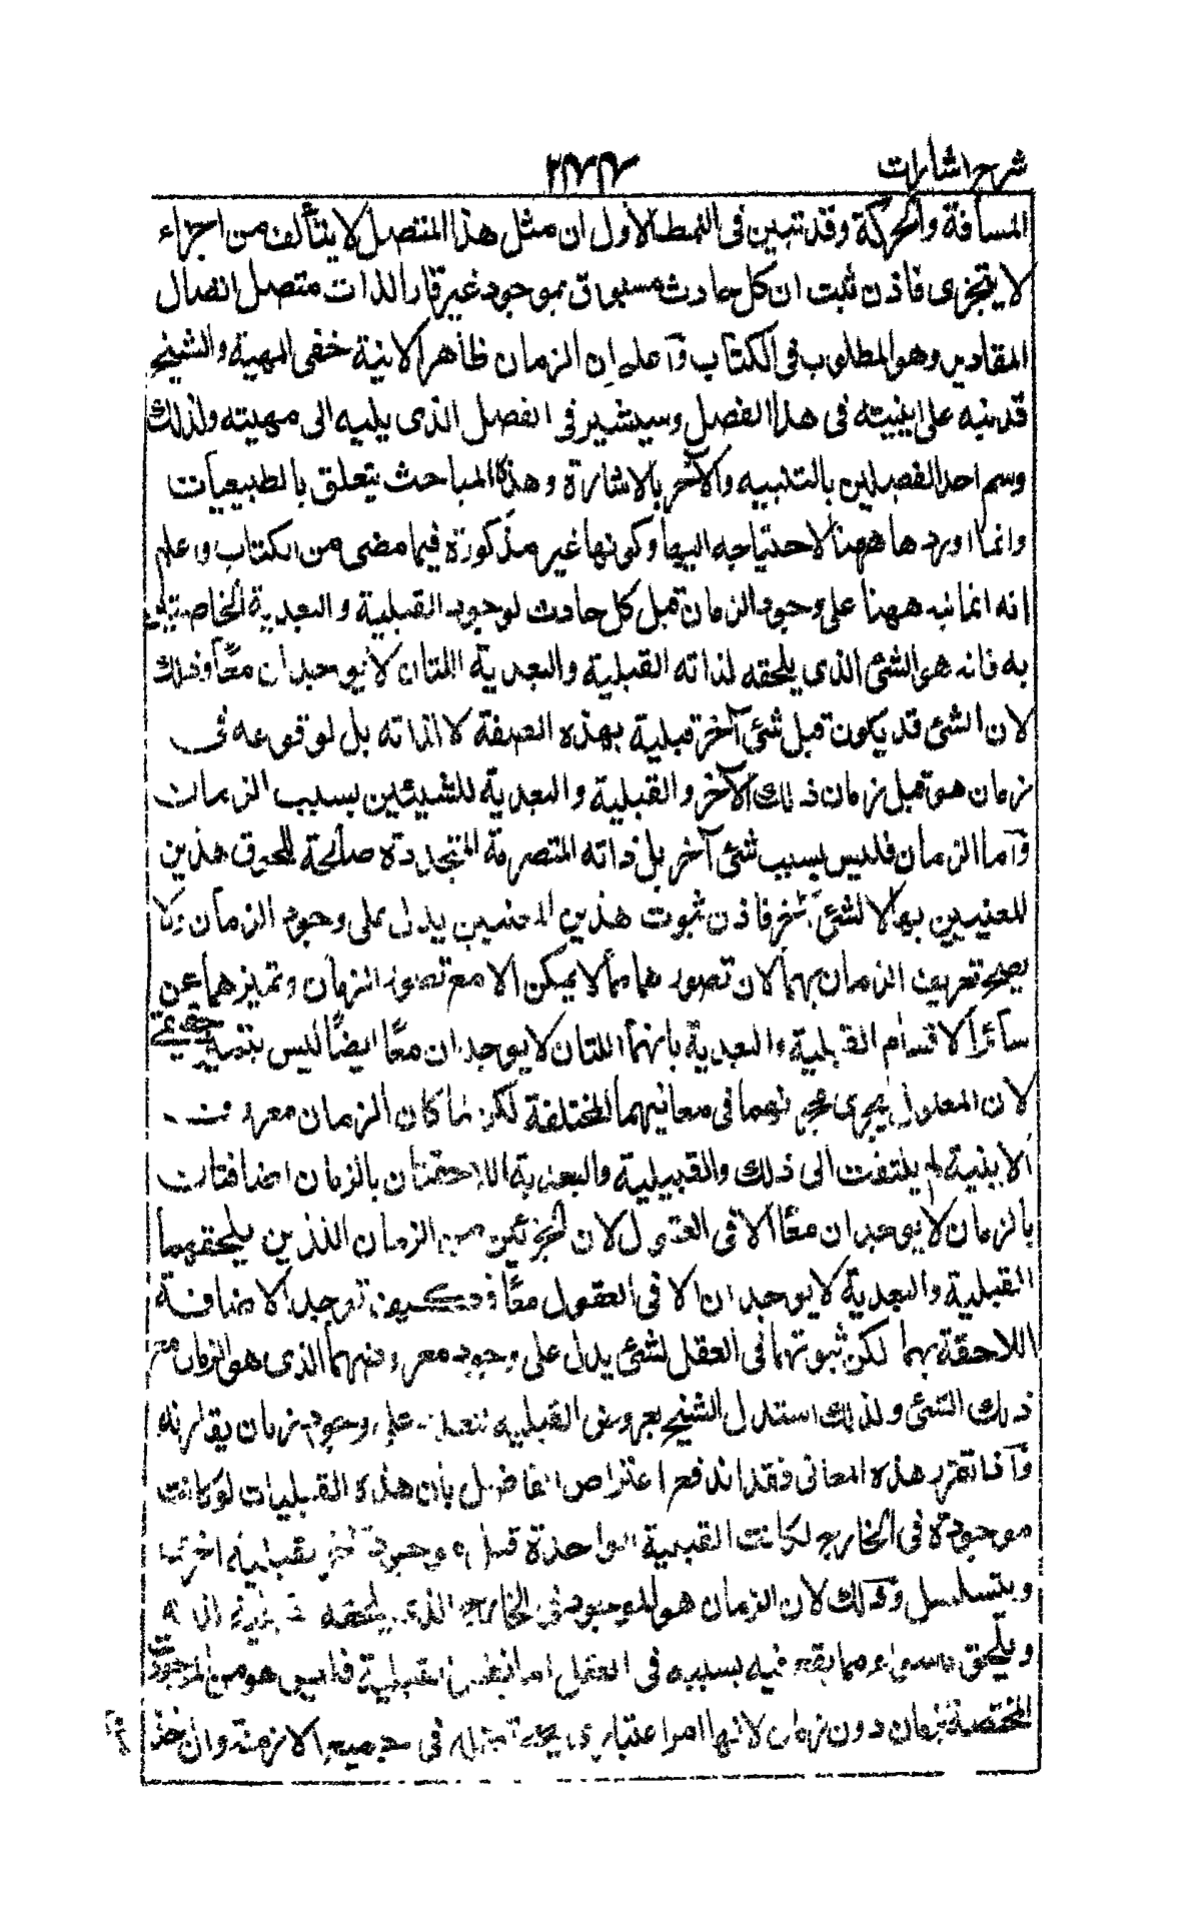 شرح اشارات
المسافة والحركة وقد تبين فى النمط الأول ان مثل هذا المتصل لا يتألف من اجزاء
لا يتجزى فاذن ثبت ان كل حادث مسبوق بموجود غير قار الذات متصل اتصال
المقادير وهو المطلوب فى الكتاب وآعلم ان الزمان ظاهر الانية خفى المهية والشيخ
قد نبه على انيته فى هذا الفصل وسيشير فى الفصل الذى يليه الى مهيته ولذلك
وسم احد الفصلين بالتنبيه والآخر بالاشارة وهذه المباحث يتعلق بالطبيعيات
وانما اوردها ههنا لاحتياجه اليها وكونها غير مذكورة فيما مضى من الكتاب واعلم
انه انما نبه ههنا على وجود الزمان قبل كل حادث لوجود القبلية والبعدية الخاصتين
به فانه هو الشئ الذى يلحقه لذاته القبلية والبعدية اللتان لا يوجدان معًا وذلك
لان الشئ قد يكون قبل شئ آخر قبلية بهذه الصفة لا لذاته بل لوقوعه فى
زمان هو قبل زمان ذلك الآخر والقبلية والبعدية للشيئين بسبب الزمان
وآما الزمان فليس بسبب شئ آخر بل ذاته المتصرمة المتجددة صالحة للحوق هذين
المعنيين بها لا لشئ آخر فاذن ثبوت هذين المعنيين يدل على وجود الزمان ولا
يصح تعريف الزمان بهما لان تصورهما لا يمكن الا مع تصور الزمان وتميزهما عن
سائر الاقسام القبلية والبعدية بانهما اللتان لا يوجدان معًا ايضًا ليس بتميز حقيقى
لان المعلول يجرى مجراهما فى معانيهما المختلفة لكن لما كان الزمان معروف
الانية لم يلتفت الى ذلك والقبيلية والبعدية اللاحقتان بالزمان اضافتان
بالزمان لا يوجدان معًا الا فى العقول لان الجزئين من الزمان اللذين يلحقهما
القبلية والبعدية لا يوجدان الا فى العقول معًا فكيف توجد الاضافة
اللاحقة بهما لكن ثبوتهما فى العقل لشئ يدل على وجود معروضهما الذى هو الزمان مع
ذلك الشئ ولذلك استدل الشيخ بعروض القبلية للعدم على وجود زمان يقارنه
وآذا تقرر هذه المعانى فقد اندفع اعتراض الفاضل بان هذه القبليات لو كانت
موجودة فى الخارج لكانت القبلية الواحدة قبل وجود آخر بقبلية اخرى
ويتسلسل وذلك لان الزمان هو الموجود فى الخارج الذى يلحقه
ويلحق ما سواه مما يقع فيه بسببه فى العقل اما نفس القبلية فليس هو من الموجودات
المختصة بزمان دون زمان لانها امر اعتبارى يصح تعقله فى جميع الازمنة وان اخذ